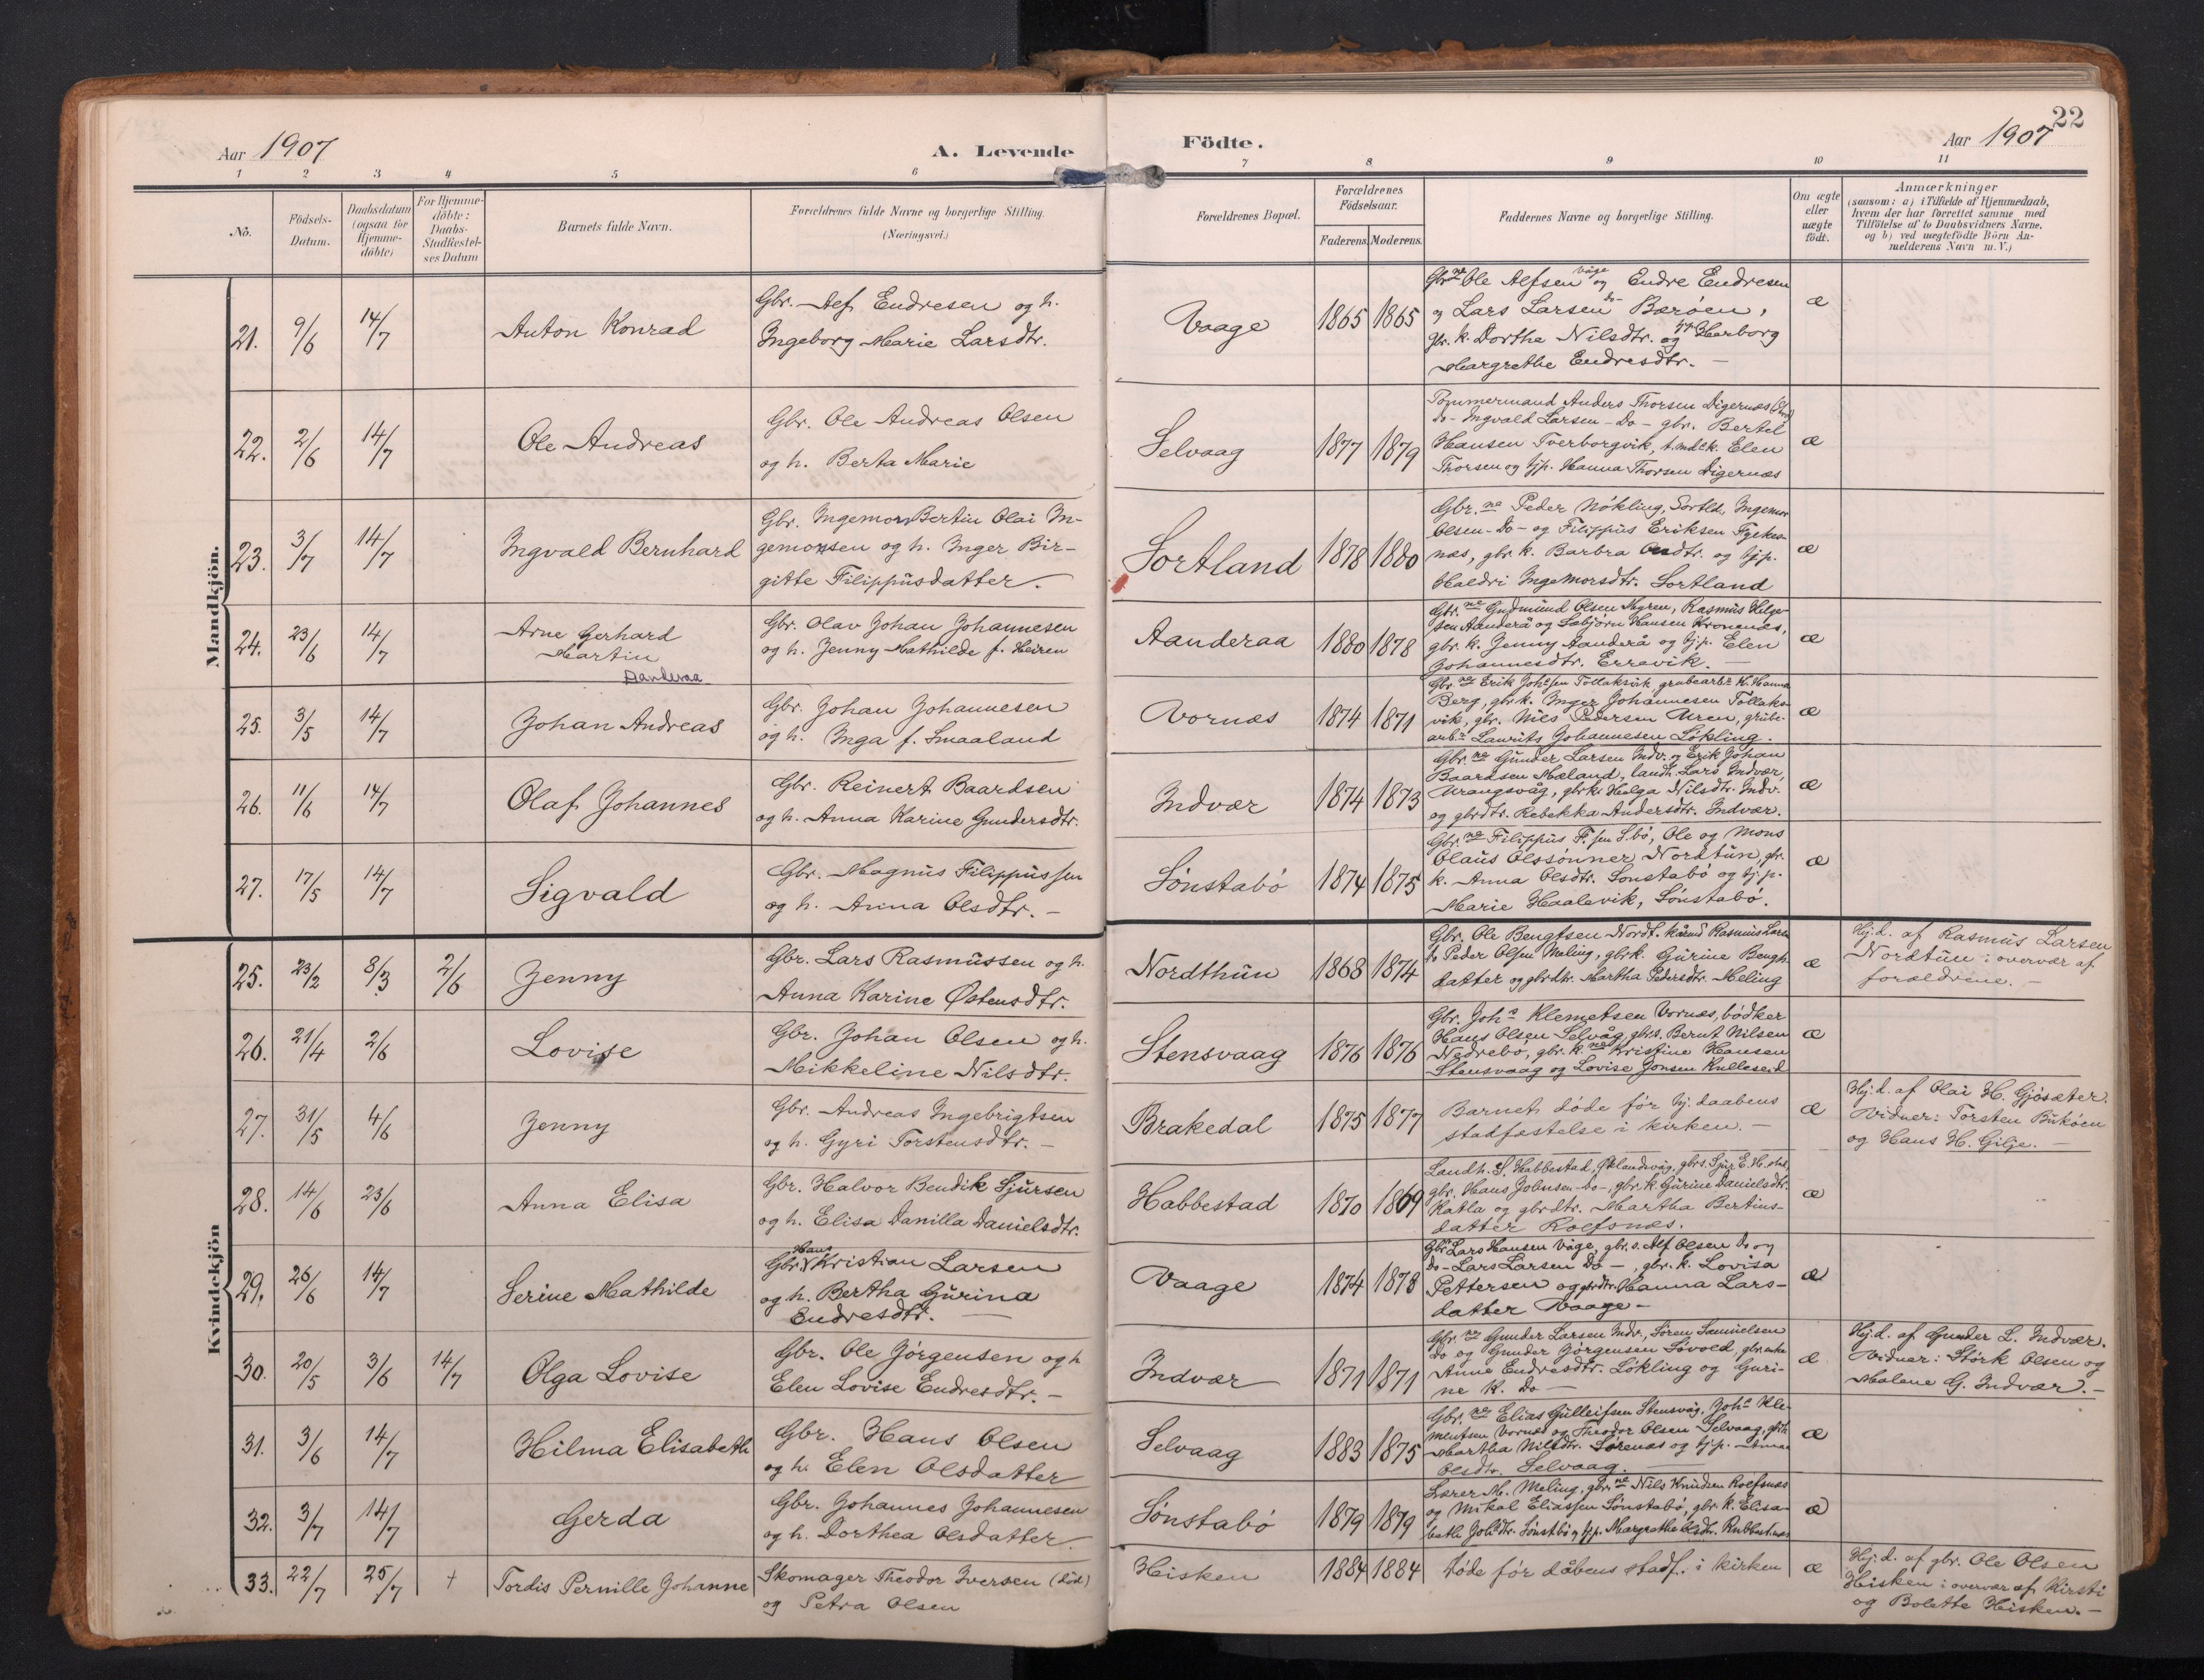 22
Aar 1907
A. Levende
Födte.
Aar 1907
1 2 3 4 5 6 7 8 9 10 11
No.
Födsels-
Datum.
Daabsdatum
(ogsaa for
Hjemme-
döbte)
For Hjemme-
döbte:
Daabs-
Stadfæstel-
ses Datum
Barnets fulde Navn.
Forældrenes fulde Navne og borgerlige Stilling.
(Næringsvei.)
Forældrenes Bopæl.
Forældrenes
Födselsaar.
Faderens. Moderens.
Faddernes Navne og borgerlige Stilling.
Om ægte
eller
uægte
födt.
Anmærkninger
(saasom: a) i Tilfælde af Hjemmedaab,
hvem der har forrettet samme med
Tilföielse af to Daabsvidners Navne.
og b) ved uægtefödte Börn An-
melderens Navn m. V.)
Mandkjön.
21. 9/6 14/7
Anton Konrad
Gbr. Alf Endresen og h.
Ingeborg Marie Larsdtr.
Vaage
1865 1865
Gbr.ne Ole Alfsen Våge og Endre Endresen
og Lars Larsen do Bærøen,
gbr. k. Dorthe Nilsdtr. og tjp. Harborg
Margrethe Endresdtr. –
æ
22. 2/6 14/7
Ole Andreas
Gbr. Ole Andreas Olsen
og h. Berta Marie
Selvaag
1877 1879
Tømmermand Anders Thorsen Digernæs
Do- Ingvald Larsen - Do - gbr. Bertel
Hansen Tverborgvik, t.mdsk. Elen
Thorsen og tjp. Hanna Thorsen Digernæs
æ
23. 3/7 14/7
Ingvald Bernhard
Gbr. Ingemor Bertin Olai In-
gemorsen og h. Inger Bir-
gitte Filippusdatter.
Sortland
1878 1880
Gbr.ne Peder Nökling, Sortld, Ingemor
Olsen - Do - og Filippus Eriksen Fyekes-
næs, gbr. k. Barbra Andtr. og tjp.
Haldri Ingemorsdtr. Sortland
æ
24. 23/6 14/7
Arne Gerhard
Martin
Aanderaa
Gbr. Olav Johan Johannesen
og h. Jenny Mathilde f. Heiren
Aanderaa
1880 1878
Gbr.ne Gudmund Olsen Myren, Rasmus Helge-
sen Aanderå og Sabjørn Hansen Kronenæs,
gbr. k. Jenny Aanderå og tj.p. Elen
Johannesdtr. Erravik. –
æ
25. 3/5 14/7
Johan Andreas
Gbr. Johan Johannesen
og h. Inga f. Smaaland
Vornæs
1874 1871
Gbr.ne Erik Johssen Tollaksvik grubearbr. K. Hanna
Berg, gbr. k. Inger Johannesen Tollaks-
vik, gbr. Nils Pedersen Uren, grube-
arbr. Laurits Johannesen Løkling.
æ
26. 11/6 14/7
Olaf Johannes
Gbr. Reinert Baardsen
og h. Anna Karine Gundersdtr.
Indvær
1874 1873
Gbr.ne Gunder Larsen Indv. og Erik Johan
Baardsen Mæland, landh. Lars Indvær,
Urangsvåg, gbr.k. Helga Nilsdtr. Indv.
og gbrdtr. Rebekka Andersdtr. Indvær.
æ
27. 17/5 14/7
Sigvald
Gbr. Magnus Filippussen
og h. Anna Olsdtr. –
Sønstabø
1874 1875
Gbr.ne Filippus F.sen S.bø, Ole og Mons
Olaus Olssønner Nordtun, gbr.
k. Anna Olsdtr. Sønstabø og tj.p.
Marie Haalevik, Sønstabø.
æ
Kvindekjön
25. 23/2 8/3 2/6
Jenny
Gbr. Lars Rasmussen og h.
Anna Karine Østensdtr.
Nordthun
1868 1874
Gbr. Ole Bengtsen Nordt. kårmd Rasmus Larsen
do Peder Olsen Meling, gbr.k. Gurine Bengts-
datter og gbrdtr. Martha Pedersdtr. Meling
æ
Hj.d. af Rasmus Larsen
Nordtun i overvær af
forældrene. –
26. 21/4 2/6
Lovise
Gbr. Johan Olsen og h.
Mikkeline Nilsdtr.
Stensvaag
1876 1876
Gbr. Johs Klemetsen Vornæs, bødker
Hans Olsen Selvåg, gbr.s. Bernt Nilsen
Nedrebø, gbr. k.ne Kristine Hansen
Stensvaag og Lovise Jonsen Kulleseid
æ
27. 31/5 4/6
Jenny
Gbr. Andreas Ingebrigtsen
og h. Gyri Torstensdtr. –
Brakedal
1875 1877
Barnet døde før hj. daabens
stadfæstelse i kirken. –
æ
Hj.d. af Olai H. Gjøsæter.
Vidner: Torsten Bukøen
og Hans H. Gilje. –
28. 14/6 23/6
Anna Elisa
Gbr. Halvor Bendik Sjursen
og h. Elisa Danilla Danielsdtr.
Habbestad
1870 1869
Landh. S. Habbestad, Øklandsvåg, gbr.s. Sjur E. H.stad,
gbr. Hans Johnsen - Do -, gbr. k. Gurine Danielsdtr.
Katla og gbrdtr. Martha Bertins-
datter Rolfsnæs.
æ
29. 26/6 14/7
Serine Mathilde
Gbr. Hans Kristian Larsen
og h. Bertha Gurina
Endresdtr. –
Vaage
1874 1878
Gbr. Lars Hansen Våge, gbr. s. Alf Olsen Do og
Do - Lars Larsen Do -, gbr. k. Lovisa
Pettersen og gbrdtr. Hanna Lars-
datter Vaage –
æ
30. 20/5 3/6 14/7
Olga Lovise
Gbr. Ole Jørgensen og h
Elen Lovise Endresdtr. –
Indvær
1871 1871
Gbr.ne Gunder Larsen Indv., Søren Samuelsen
Do og Gunder Jørgensen Løvold, gbr. enke
Anna Endresdtr. Løkling og Guri-
ne K. Do –
æ
Hj.d. af Gunder L. Indvær.
Vidner: Størk Olsen og
Malene G. Indvær. –
31. 3/6 14/7
Hilma Elisabeth
Gbr. Hans Olsen
og h. Elen Olsdatter
Selvaag
1883 1875
Gbr.ne Elias Gulleifsen Stensvåg, Johs Kle-
mentsen Vornæs og Theodor Olsen Selvaag, gbr.k.
Martha Nilsdtr. Lørenæs og tj.p. Anna
Olsdtr. Selvaag. –
æ
32. 3/7 14/7
Gerda
Gbr. Johannes Johannesen
og h. Dorthea Olsdatter.
Sønstabø
1879 1879
Lærer M. Meling, gbr.ne Nils Knudsen Rolfsnæs
og Mikal Eliassen Sønstabø, gbr. k. Elisa-
beth Johsdtr. Sønstbø og tjp. Margrethe Olsdtr. Rubbestnæs
æ
33. 22/7 25/7 +
Tordis Pernille Johanne
Skomager Theodor Iversen (död)
og Petra Olsen
Hisken
1884 1884
Døde før dåbens stadf. i kirken
æ
Hj.d. af gbr. Ole Olsen
Hisken i overvær af Kirsti
og Bolette Hisken. –